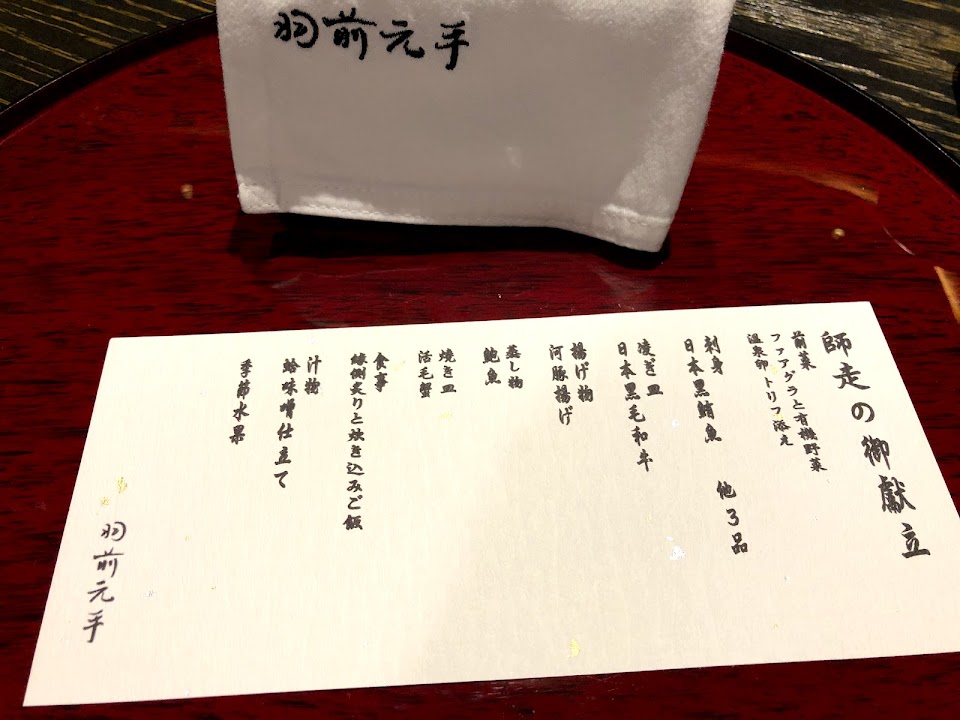 羽前元手
師走の御献立
前菜
ファアグラと有機野菜
温泉卵 トリフ添え
刺身
日本黒鮪魚 他3品
凌ぎ皿
日本黒毛和牛
揚げ物
河豚揚げ
蒸し物
鮑魚
焼き皿
活毛蟹
食事
縁側炙りと炊き込みご飯
汁物
蛤味噌仕立て
季節水果
羽前元手